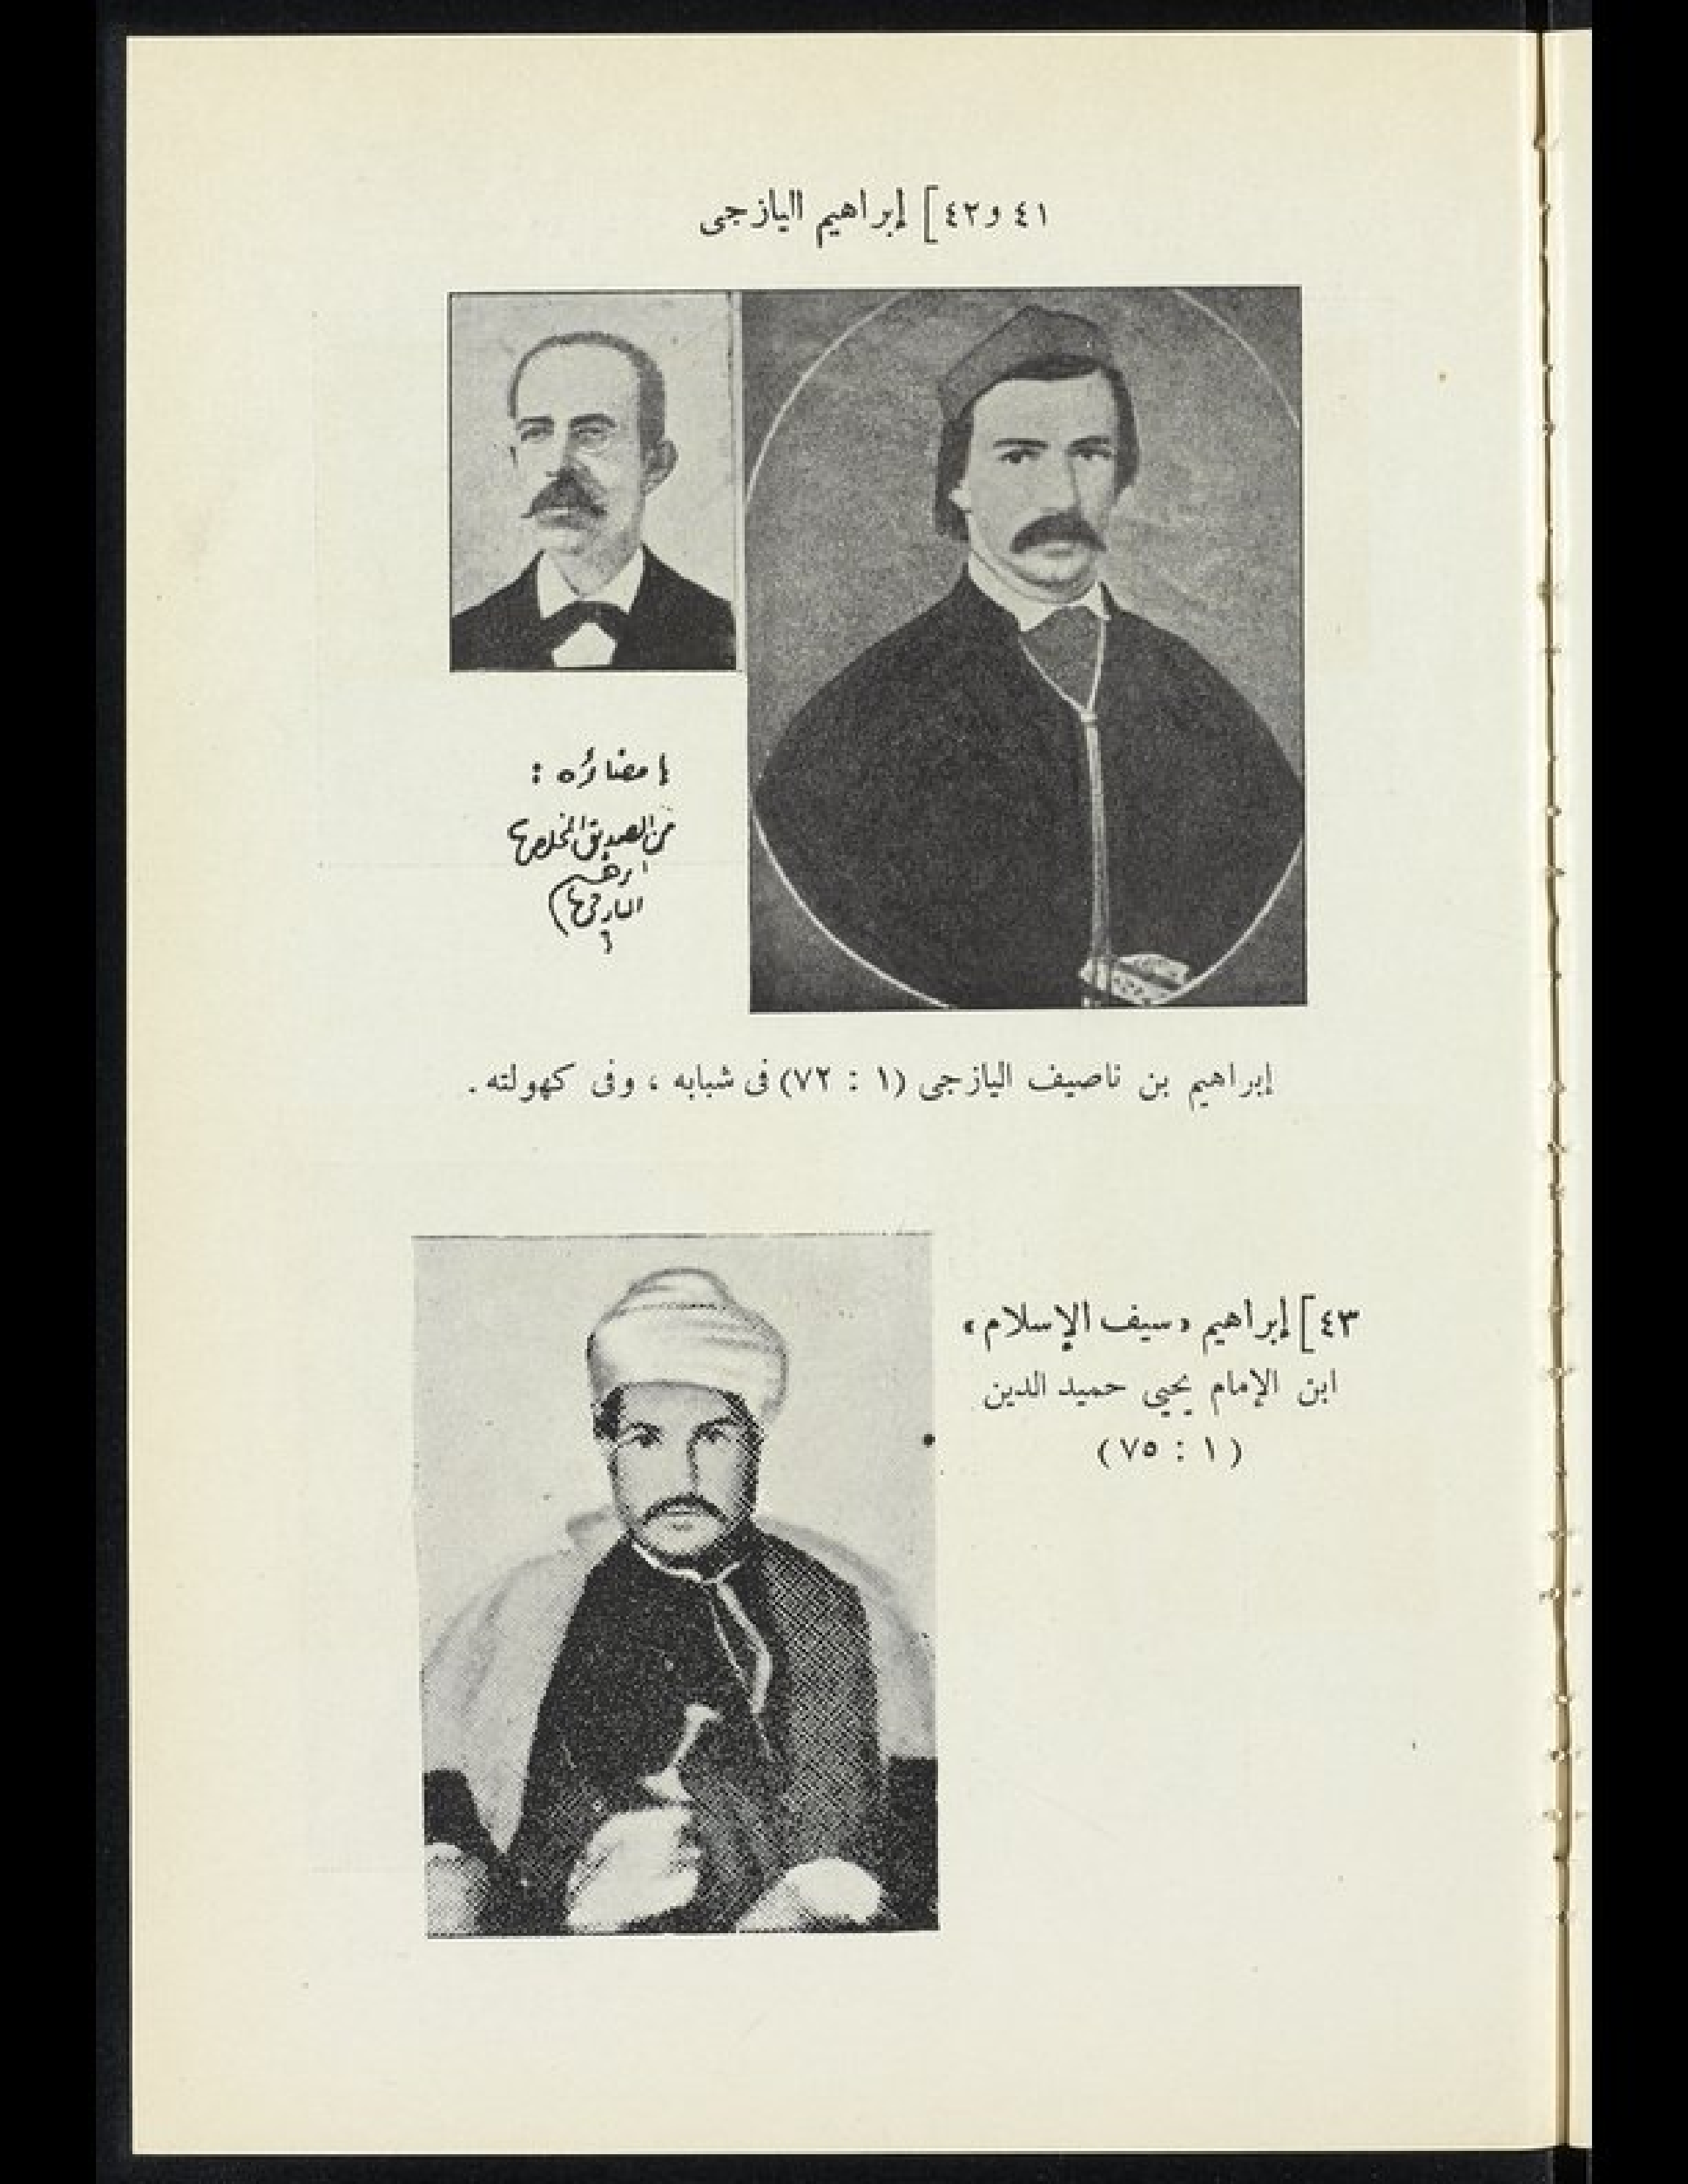 ٤١ و٤٢] إبراهيم اليازجى
إمضاؤه :
من الصديق المخلص
ابرهيم
اليازجي
إبراهيم بن ناصيف اليازجى (١ : ٧٢) فى شبابه ، وفى كهولته .
٤٣] إبراهيم « سيف الإسلام »
ابن الإمام يحيى حميد الدين
(١ : ٧٥)